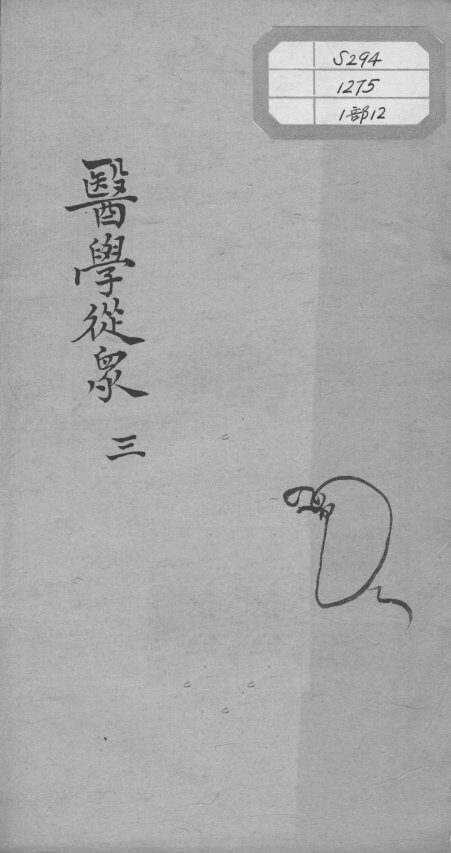 S294
1275
1部12
醫學從眾
三